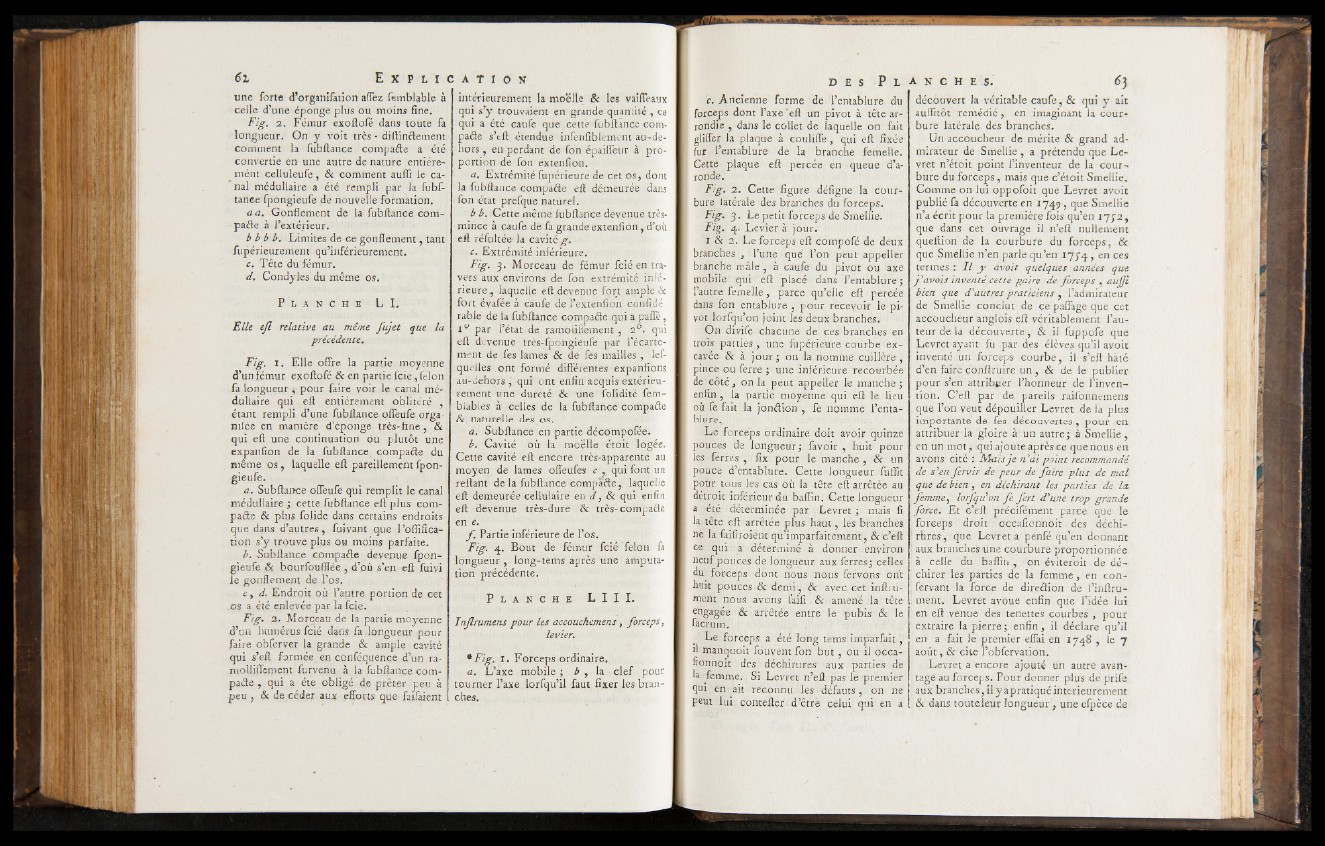 62 EXPLICATION
une forte d'organiſation aſſez ſemblable à
celle d'une éponge plus ou moins fine.
Fig. 2. Fémur exoſtoſé dans toute ſa
longueur. On y voit très-diſtinctement
comment la ſubſtance compacte a été
convertie en une autre de nature entiére-
mént celluleuſe, & comment auſſi le ca-
nal médullaire a été rempli par la ſubſ-
tance ſpongieuſe de nouvelle formation.
a a. Gonflement de la ſubſtance com-
pacte à l'extérieur.
b b b b. Limites de ce gonflement, tant
ſupérieurement qu'inférieurement.
c. Tête du fémur.
d. Condyles du même os.
PLANCHE LI.
Elle eſt relative au même ſujet que la
précédente.
Fig. 1. Elle offre la partie moyenne
d'un fémur exoſtoſé & en partie ſcié, ſelon
ſa longueur, pour faire voir le canal mé-
dullaire qui eſt entiérement oblitéré,
étant rempli d'une ſubſtance oſſeuſe orga-
niſée en manière d'éponge très-fine, &
qui eſt une continuation ou plutôt une
expanſion de la ſubſtance compacte du
même os, laquelle eſt pareillement ſpon-
gieuſe.
a. Subſtance oſſeuſe qui remplit le canal
médullaire; cette ſubſtance eſt plus com-
pacte & plus ſolide dans certains endroits
que dans d'autres, ſuivant que l'oſſifica-
tion s'y trouve plus ou moins parfaite.
b. Subſtance compacte devenue ſpon-
gieuſe & bourſoufflée, d'où s'en eſt ſuivi
le gonflement de l'os.
c, d. Endroit où l'autre portion de cet
os a été enlevée par la ſcie.
Fig. 2. Morceau de la partie moyenne
d'un humérus ſcié dans ſa longueur pour
faire obſerver la grande & ample cavité
qui s'eſt formée en conſéquence d'un ra-
molliſſement ſurvenu à la ſubſtance com-
pacte, qui a été obligé de prêter peu à
peu, & de céder aux efforts que faiſaient
intérieurement la moëlle & les vaiſſeaux
qui s'y trouvaient en grande quantité, ce
qui a été cauſe que cette ſubſtance com-
pacte s'eſt étendue inſenſiblement au-de-
hors, en perdant de ſon épaiſſeur à pro-
portion de ſon extenſion.
a. Extrémité ſupérieure de cet os, dont
la ſubſtance compacte eſt démeurée dans
ſon état preſque naturel.
b b. Cette même ſubſtance devenue très-
mince à cauſe de ſa grande extenſion, d'où
eſt réſultée la cavité g.
c. Extrémité inférieure.
Fig. 3. Morceau de fémur ſcié en tra-
vers aux environs de ſon extrémité infé-
rieure, laquelle eſt devenue fort ample &
fort évaſée à cauſe de l'extenſion conſidé
rable de la ſubſtance compacte qui a paſſé,
1° par l'état de ramolliſſement, 2°. qui
eſt devenue très-ſpongieuſe par l'écarte-
ment de ſes lames & de ſes mailles, leſ-
quelles ont formé différentes expanſions
au-dehors, qui ont enfin acquis extérieu-
rement une dureté & une ſolidité ſem-
blables à celles de la ſubſtance compacte
& naturelle des os.
a. Subſtance en partie décompoſée.
b. Cavité où la moëlle étoit logée.
Cette cavité eſt encore très-apparente au
moyen de lames oſſeuſes c, qui ſont un
reſtant de la ſubſtance compacte, laquelle
eſt demeurée cellulaire en d, & qui enfin
eſt devenue très-dure & très-compacte
en e.
f. Partie inférieure de l'os.
Fig. 4. Bout de fémur ſcié ſelon ſa
longueur, long-tems après une amputa-
tion précédente.
PLANCHE LIII.
Inſtrumens pour les accouchemens, forceps,
levier.
* Fig. 1. Forceps ordinaire.
a. L'axe mobile; b, la clef pour
tourner l'axe lorſqu'il faut fixer les bran-
ches.
DES PLANCHES. 63
c. Ancienne forme de l'entablure du
forceps dont l'axe eſt un pivot à tête ar-
rondie, dans le collet de laquelle on fait
gliſſer la plaque à couliſſe, qui eſt fixée
ſur l'entablure de la branche femelle.
Cette plaque eſt percée en queue d'a-
ronde.
Fig. 2. Cette figure déſigne la cour-
bure latérale des branches du forceps.
Fig. 3. Le petit forceps de Smellie.
Fig. 4. Levier à jour.
1 & 2. Le forceps eſt compoſé de deux
branches, l'une que l'on peut appeller
branche mâle, à cauſe du pivot ou axe
mobile qui eſt placé dans l'entablure;
l'autre femelle, parce qu'elle eſt percée
dans ſon entablure, pour recevoir le pi-
vot lorſqu'on joint les deux branches.
On diviſe chacune de ces branches en
trois parties, une ſupérieure courbe ex-
cavée & à jour; on la nomme cuillère,
pince ou ſerre; une inférieure recourbée
de côté, on la peut appeller le manche;
enfin, la partie moyenne qui eſt le lieu
où ſe fait la jonction, ſe nomme l'enta-
blure.
Le forceps ordinaire doit avoir quinze
pouces de longueur; ſavoir, huit pour
les ſerres, ſix pour le manche, & un
pouce d'entablure. Cette longueur ſuffit
pour tous les cas où la tête eſt arrêtée au
détroit inférieur du baſſin. Cette longueur
a été déterminée par Levret; mais ſi
la tête eſt arrêtée plus haut, les branches
ne la ſaiſiroient qu'imparfaitement, & c'eſt
ce qui a déterminé à donner environ
neuf pouces de longueur aux ſerres; celles
du forceps dont nous nous ſervons ont
huit pouces & demi, & avec cet inſtru-
ment nous avons ſaiſi & amené la tête
engagée & arrêtée entre le pubis & le
ſacrum.
Le forceps a été long tems imparfait,
il manquoit ſouvent ſon but, ou il occa-
ſionnoit des déchirures aux parties de
la femme. Si Levret n'eſt pas le premier
qui en ait reconnu les défauts, on ne
peut lui conteſter d'être celui qui en a
découvert la véritable cauſe, & qui y ait
auſſitôt remédié, en imaginant la cour-
bure latérale des branches.
Un accoucheur de mérite & grand ad-
mirateur de Smellie, a prétendu que Le-
vret n'étoit point l'inventeur de la cour-
bure du forceps, mais que c'étoit Smellie.
Comme on lui oppoſoit que Levret avoit
publié ſa découverte en 1749, que Smellie
n'a écrit pour la première fois qu'en 1752,
que dans cet ouvrage il n'eſt nullement
queſtion de la courbure du forceps, &
que Smellie n'en parle qu'en 1754, en ces
termes: Il y avoit quelques années que
j'avois inventé cette paire de forceps, auſſi
bien que d'autres praticiens, l'admirateur
de Smellie conclut de ce paſſage que cet
accoucheur anglois eſt véritablement l'au-
teur de la découverte, & il ſuppoſe que
Levret ayant ſu par des élèves qu'il avoit
inventé un forceps courbe, il s'eſt hâté
d'en faire conſtruire un, & de le publier
pour s'en attribuer l'honneur de l'inven-
tion. C'eſt par de pareils raiſonnemens
que l'on veut dépouiller Levret de la plus
importante de ſes découvertes, pour en
attribuer la gloire à un autre; à Smellie,
en un mot, qui ajoute après ce que nous en
avons cité: Mais je n'ai point recommandé
de s'en ſervir de peur de faire plus de mal
que de bien, en déchirant les parties de la
femme, lorſqu'on ſe ſert d'une trop grande
force. Et c'eſt préciſément parce que le
forceps droit occaſionnoit des déchi-
rures, que Levret a penſé qu'en donnant
aux branches une courbure proportionnée
à celle du baſſin, on éviteroit de dé-
chirer les parties de la femme, en con-
ſervant la force de direction de l'inſtru-
ment. Levret avoue enfin que l'idée lui
en eſt venue des tenettes courbes, pour
extraire la pierre; enfin, il déclare qu'il
en a fait le premier eſſai en 1748, le 7
août, & cite l'obſervation.
Levret a encore ajouté un autre avan-
tage au forceps. Pour donner plus de priſe
aux branches, il y a pratiqué intérieurement
& dans toute leur longueur, une eſpèce de